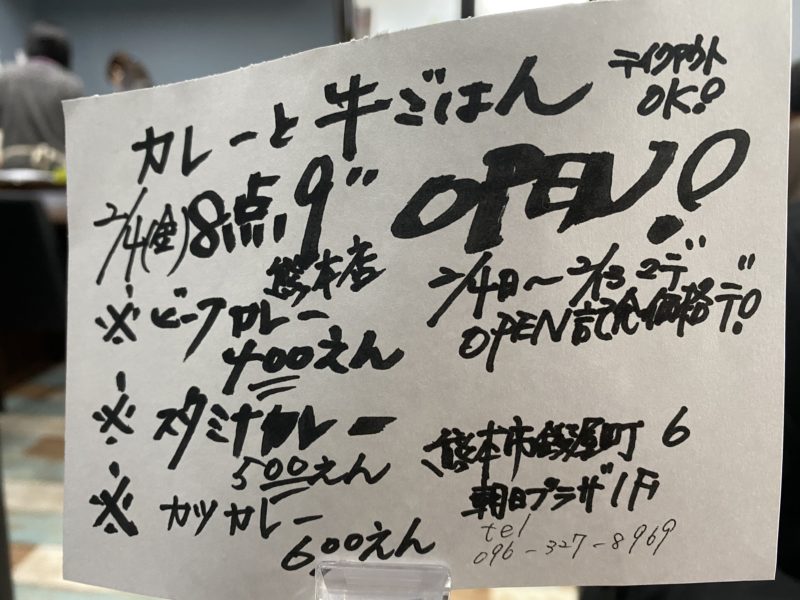 カレーと牛ごはん
テイクアウト
OK!
2/4(金)8点9" OPEN!
熊本店
2/4日〜2/13マデ
OPEN記念価格デ!
※ビーフカレー
400えん
※スタミナカレー
500えん
※カツカレー
600えん
熊本市鍛冶屋町6
朝日プラザ1F
tel
096-327-8969